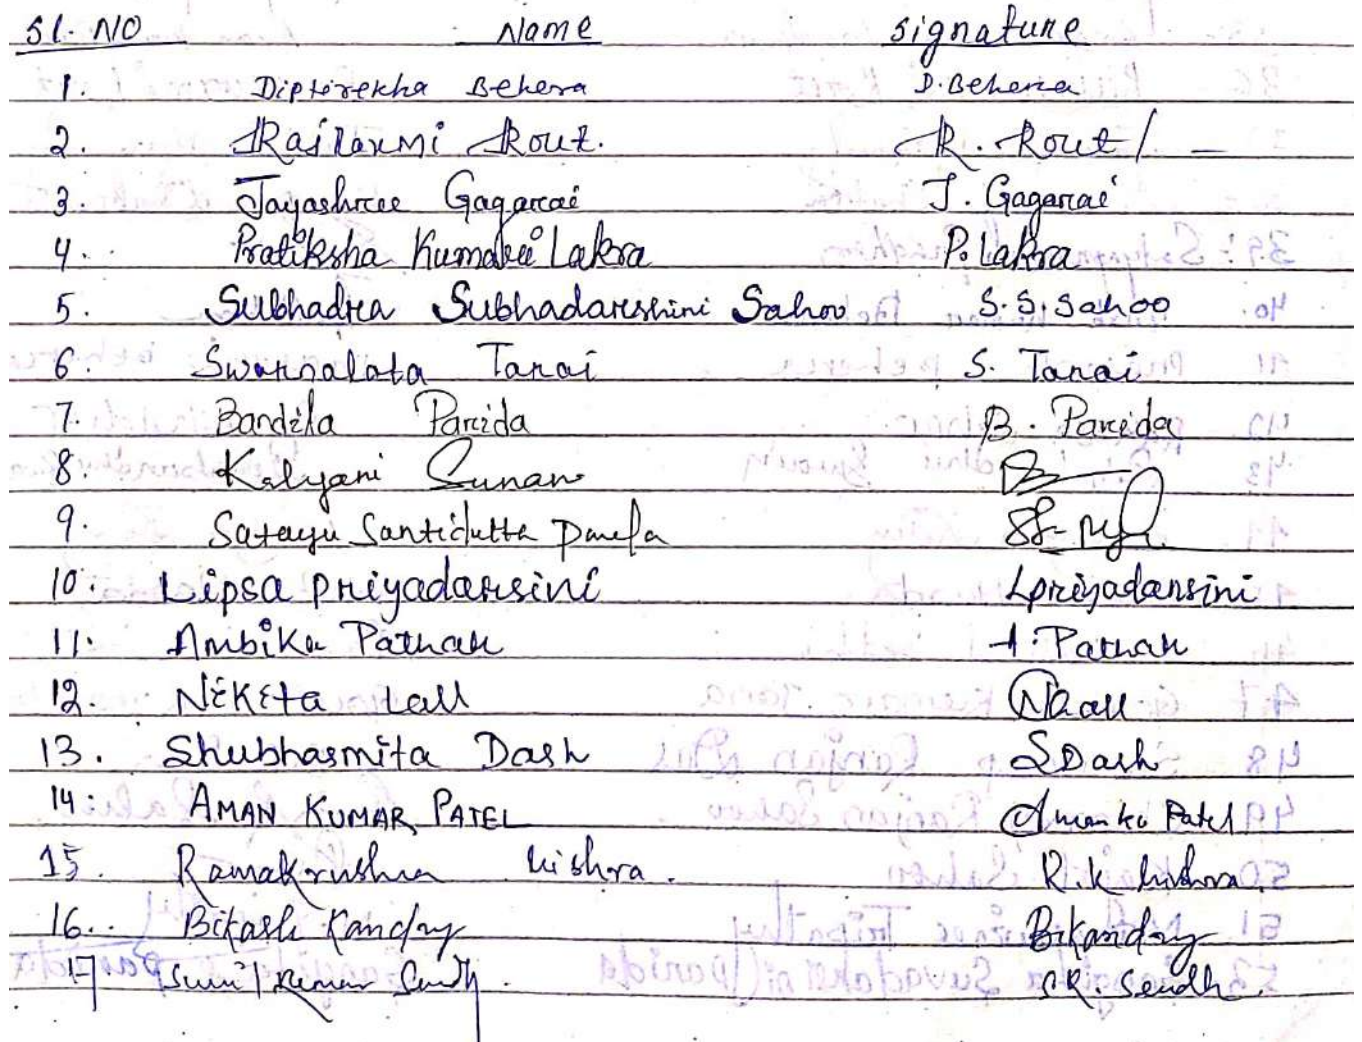 Sl. NO Name Signature
1. Diptirekha Behera D. Behera
2. Rajlaxmi Rout. R. Rout
3. Jayashree Gagarai J. Gagarai
4. Pratiksha Kumari Lakra P. Lakra
5. Subhadra Subhadarshini Sahoo S. S. Sahoo
6. Swarnalata Tarai S. Tarai
7. Bandita Parida B. Parida
8. Kalyani Sunani
9. Santidutta
10. Lipsa Priyadarsini Lpriyadarsini
11. Ambika Pathak A. Pathak
12. Nikita Lall
13. Shubhasmita Dash SDash
14. AMAN KUMAR PATEL Aman Ku Patel
15. Ramakrushna Mishra. R.K Mishra.
16. Bikash Kandry BKandry
17 Sunil Kumar